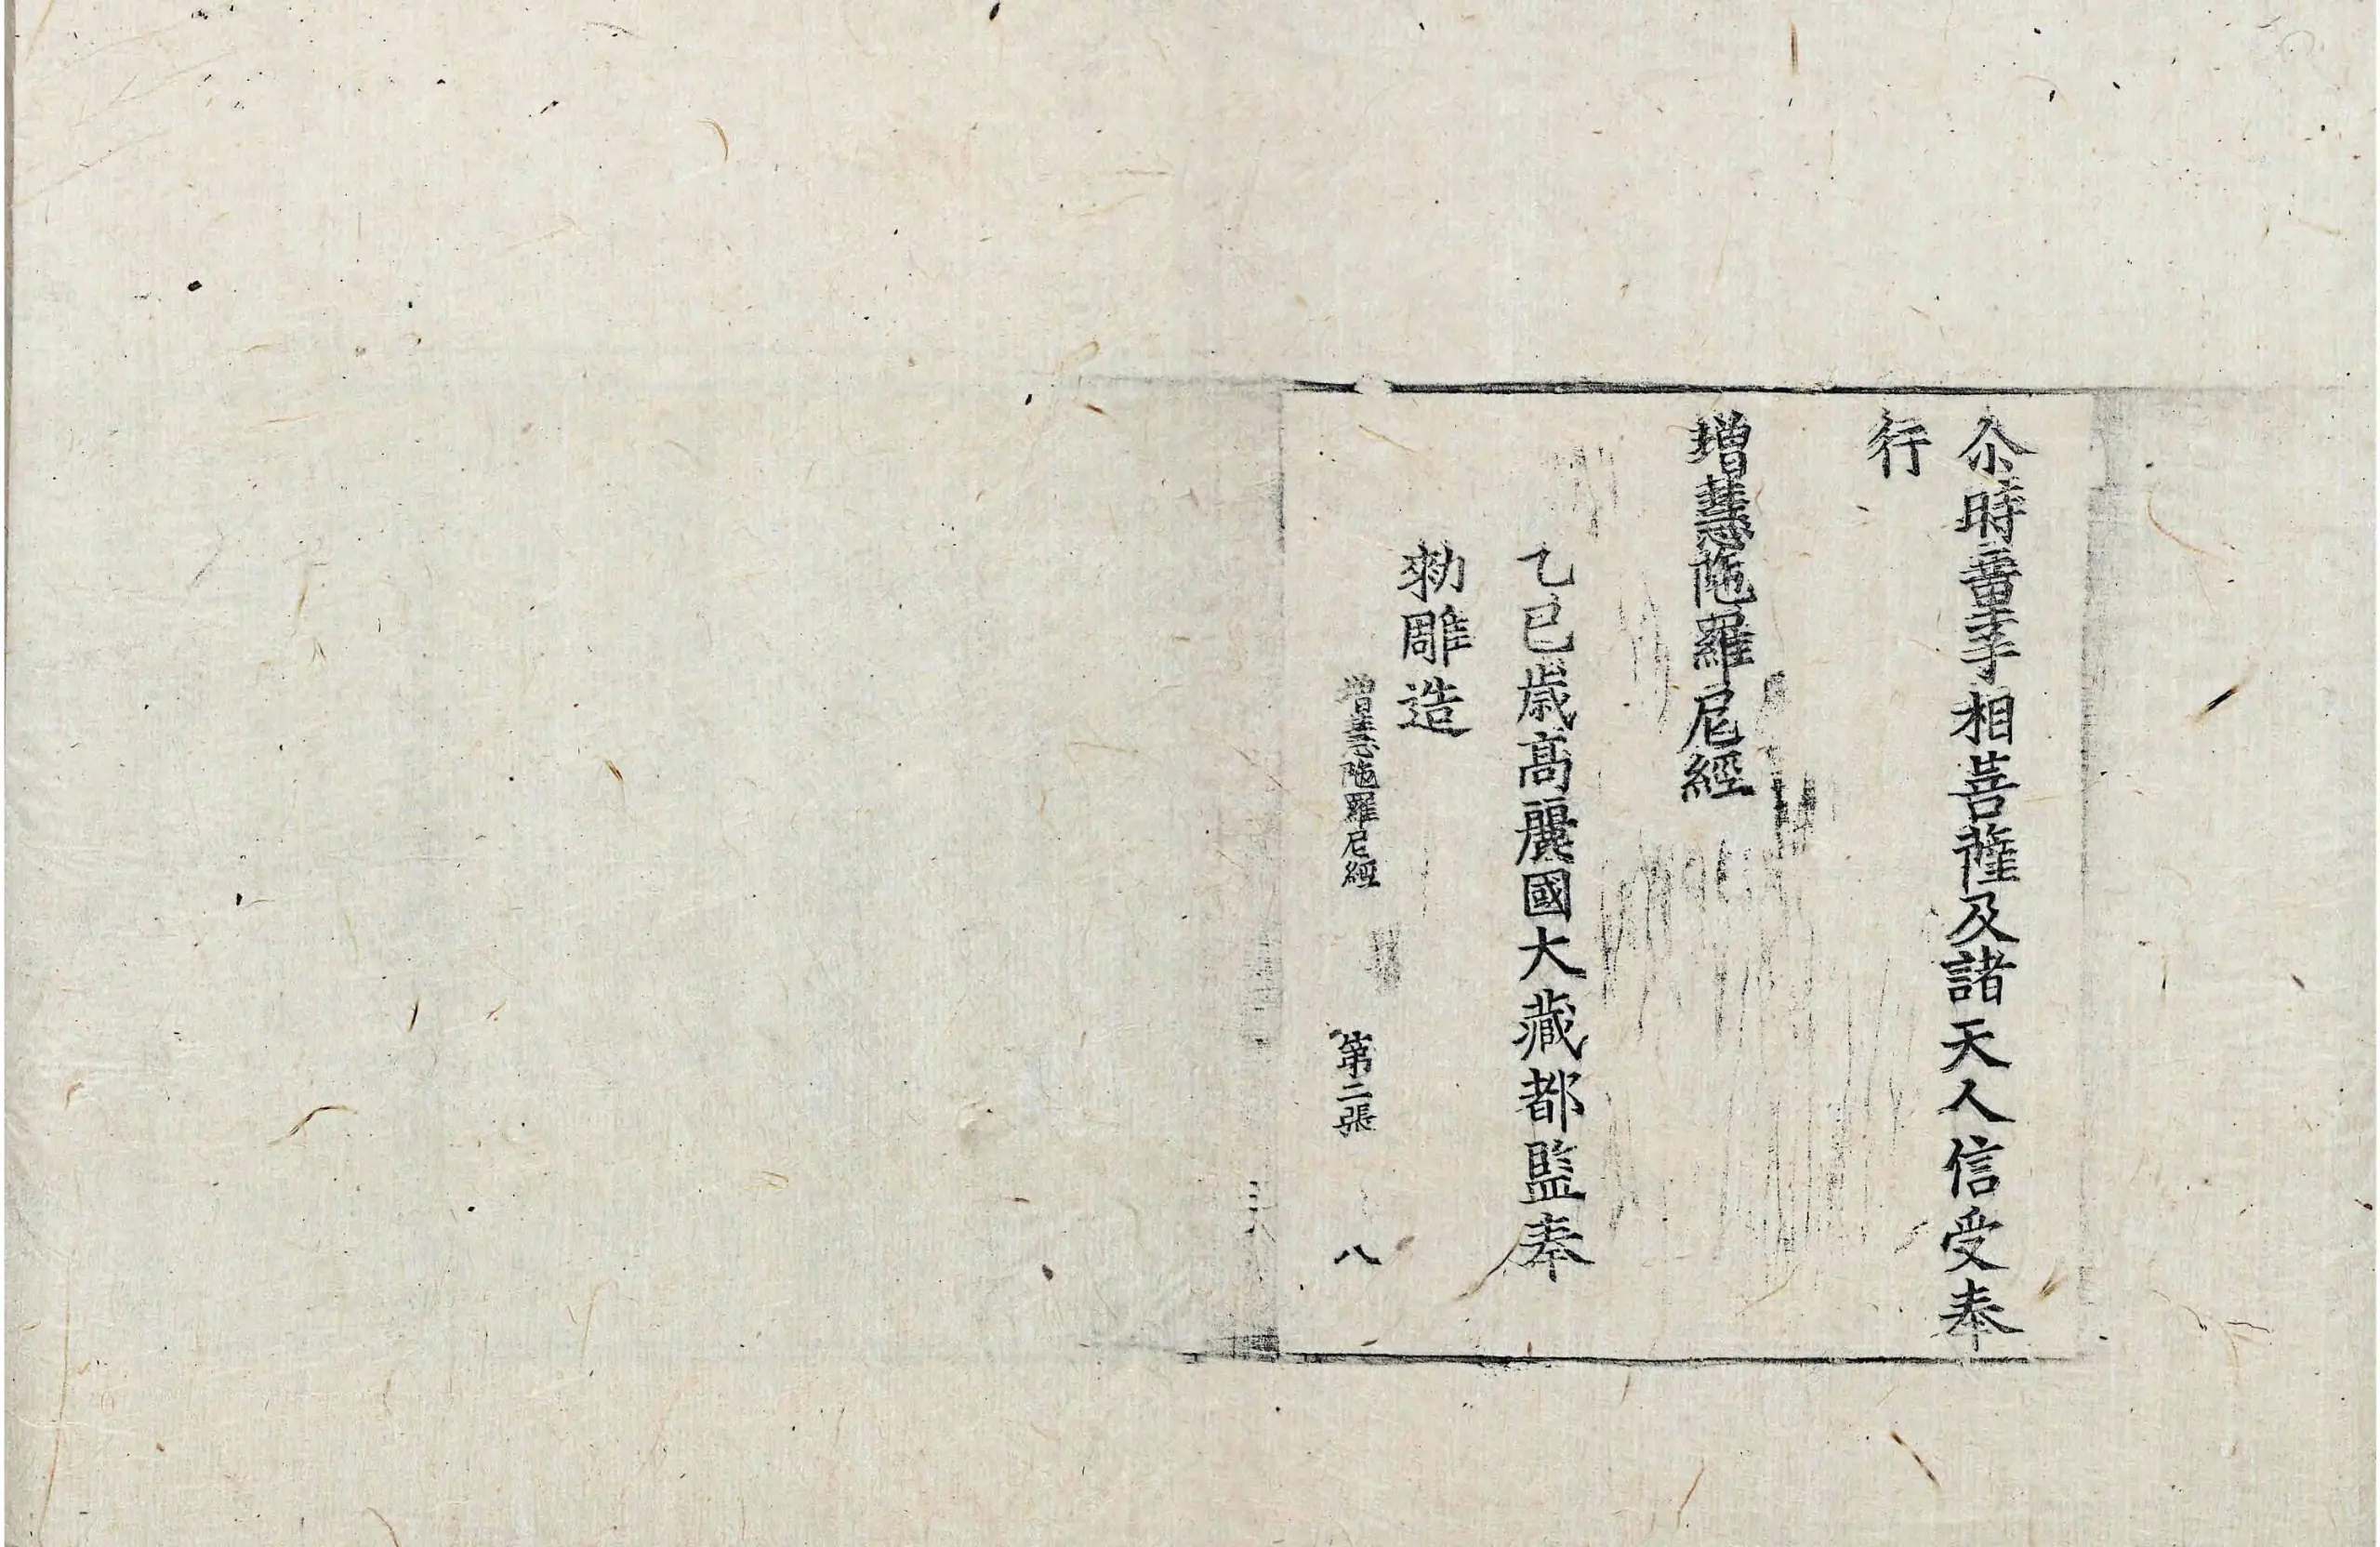 尒時童子相菩薩及諸天人信受奉
行
增慧陁羅尼經
乙巳歲高麗國大藏都監奉
勑雕造
增慧陁羅尼經 第二張 八